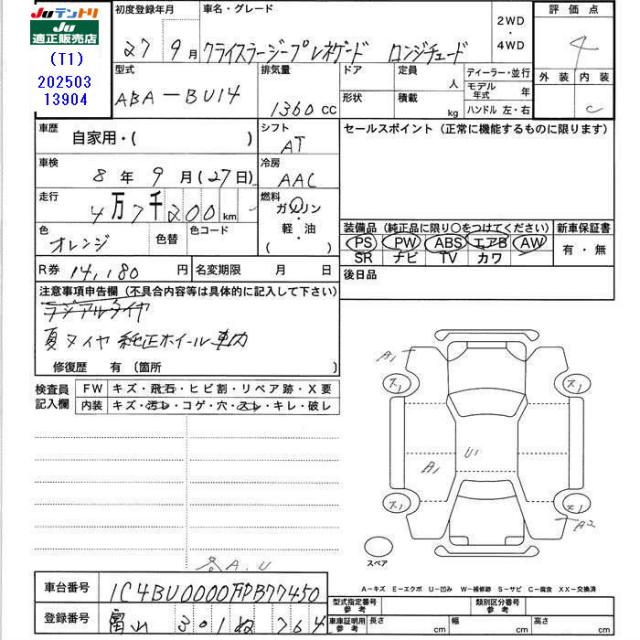 JUテントリ
JU
適正販売店
(T1)
202503
13904
初度登録年月
27 9月
車名・グレード
クライスラージープレネゲード ロンジチュード
2WD
・
4WD
評価点
4
外装 内装
C
型式
ABA-BU14
排気量
1360 cc
ドア
定員
人
形状
積載
kg
ディーラー・並行
モデル年式 年
ハンドル 左・右
車歴
自家用・( )
シフト
AT
セールスポイント(正常に機能するものに限ります)
車検
8年9月(27日)
冷房
AAC
走行
4万7千200km
燃料
ガソリン
・
軽・油
( )
色
オレンジ
色替
色コード
装備品(純正品に限り○をつけてください)
新車保証書
PS PW ABS エアB AW
SR ナビ TV カワ
有・無
R券 14,180円
名変期限 月 日
後日品
注意事項申告欄(不具合内容等は具体的に記入して下さい)
ラジアルタイヤ
夏タイヤ 純正ホイール 車内
修復歴 有(箇所 )
検査員
記入欄
FW キズ・飛石・ヒビ割・リペア跡・X要
内装 キズ・汚レ・コゲ・穴・スレ・キレ・破レ
A1
A1
U1
A2
スペア
A.U
A-キズ E-エクボ U-凹み W-補修跡 S-サビ C-腐食 XX-交換済
車台番号 1C4BU0000FPB77450
登録番号 富山 301 ぬ 764
型式指定番号
参考
類別区分番号
参考
車庫証明用
参考
長さ cm 幅 cm 高さ cm